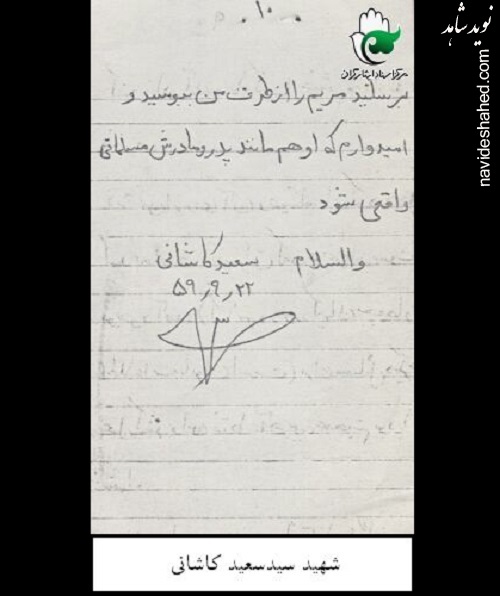 ۱۰
نوید شاهد
navideshahed.com
مرکز اسناد ایثارگران
برسانید مریم را از طرف من ببوسید و
امیدوارم که او هم مانند پدر و مادرش مسلمانی
واقعی شود
والسلام سعید کاشانی
۵۹٫۹٫۲۲
شهید سیدسعید کاشانی